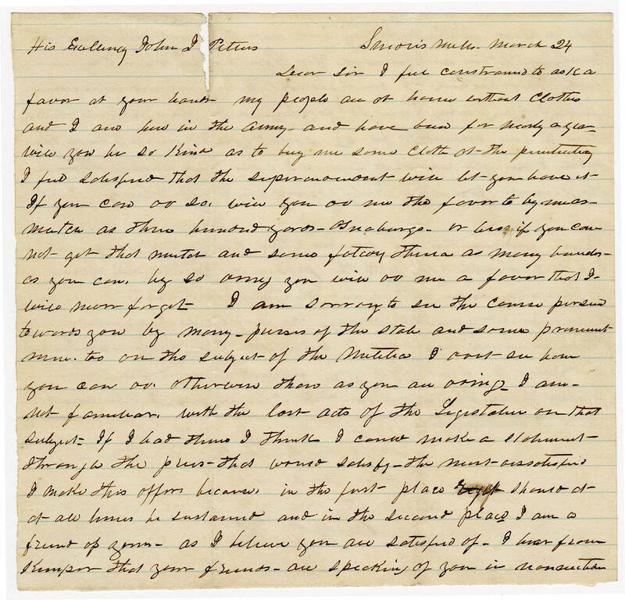 His Exellency John J Pettus Smiths Mills. March 24
Dear Sir I feel constrained to ask a
favor at your hands my people are at home without Clothes
and I am here in the Army and have been for nearly a year
will you be so Kind as to buy me some Cloth at the penitentiary
I feel satisfied that the superintendent will let you have it
If you can do so. will you do me the favor to by me as
much as three hundred yards Osnaburgs. or less if you can
not get that much and some factory thread as many bunds
as you can. by so doing you will do me a favor that I
will never forget I am sorry to see the course persued
towards you by many presses of the state and some prominent
men. too on the subject of the Militia I dont see how
you can do. otherwise than as you are doing I am
not familiar. with the last acts of the Legislature on that
subject If I had them I think I could make a statement
through the press that would satisfy the most dissatisfied
I make this offer because. in the first place right should at
at all times be sustained and in the second place I am a
friend of yours as I believe you are satisfied of I hear from
Kemper that your friends are speaking of you in connection